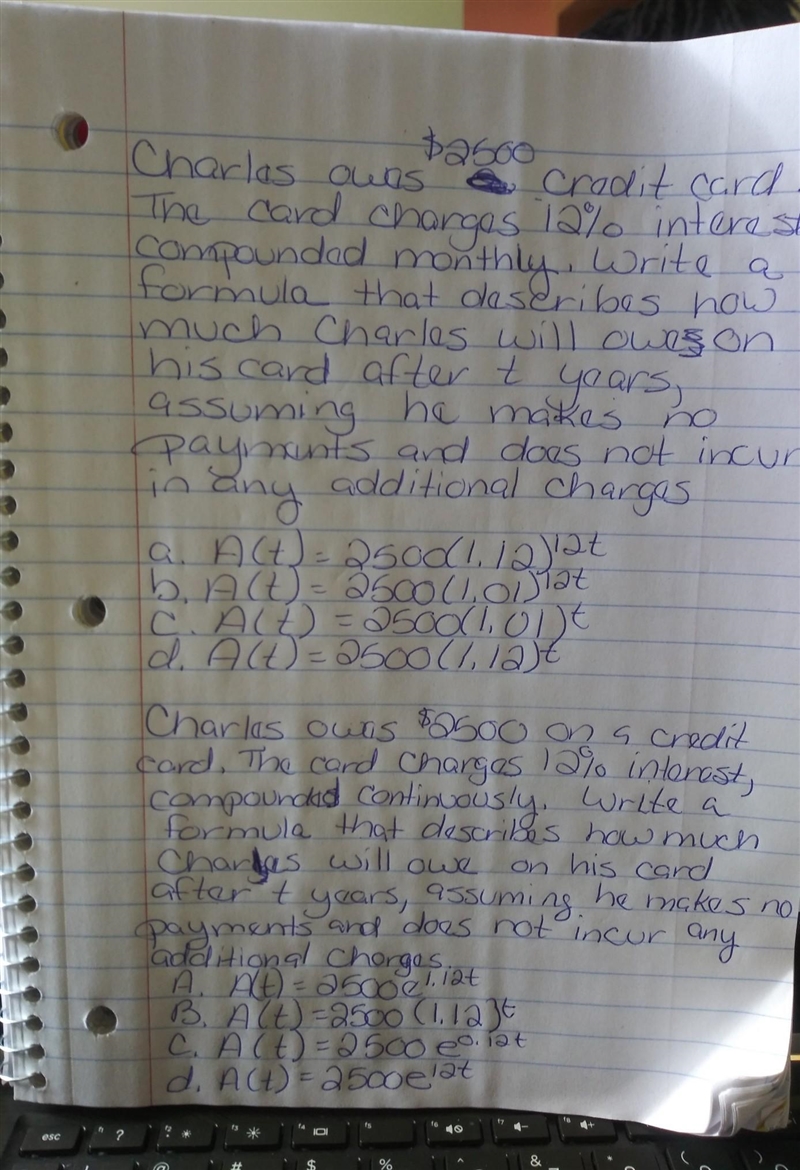 $2500
Charles owes credit card.
The card charges 12% interest
compounded monthly. Write a
formula that describes how
much Charles will owes on
his card after t years,
assuming he makes no
payments and does not incur
in any additional charges
a. A(t) = 2500(1.12)^12t
b. A(t) = 2500(1.01)^12t
c. A(t) = 2500(1.01)^t
d. A(t) = 2500(1.12)^t
Charles owes $2500 on a credit
card. The card charges 12% interest,
compounded continuously. Write a
formula that describes how much
Charles will owe on his card
after t years, assuming he makes no
payments and does not incur any
additional charges.
A. A(t) = 2500e^1.12t
B. A(t) = 2500(1.12)^t
C. A(t) = 2500e^0.12t
d. A(t) = 2500e^12t
esc f1 ? f2 f3 f4 f5 f6 f7 f8
@ # $ % ^ & * (